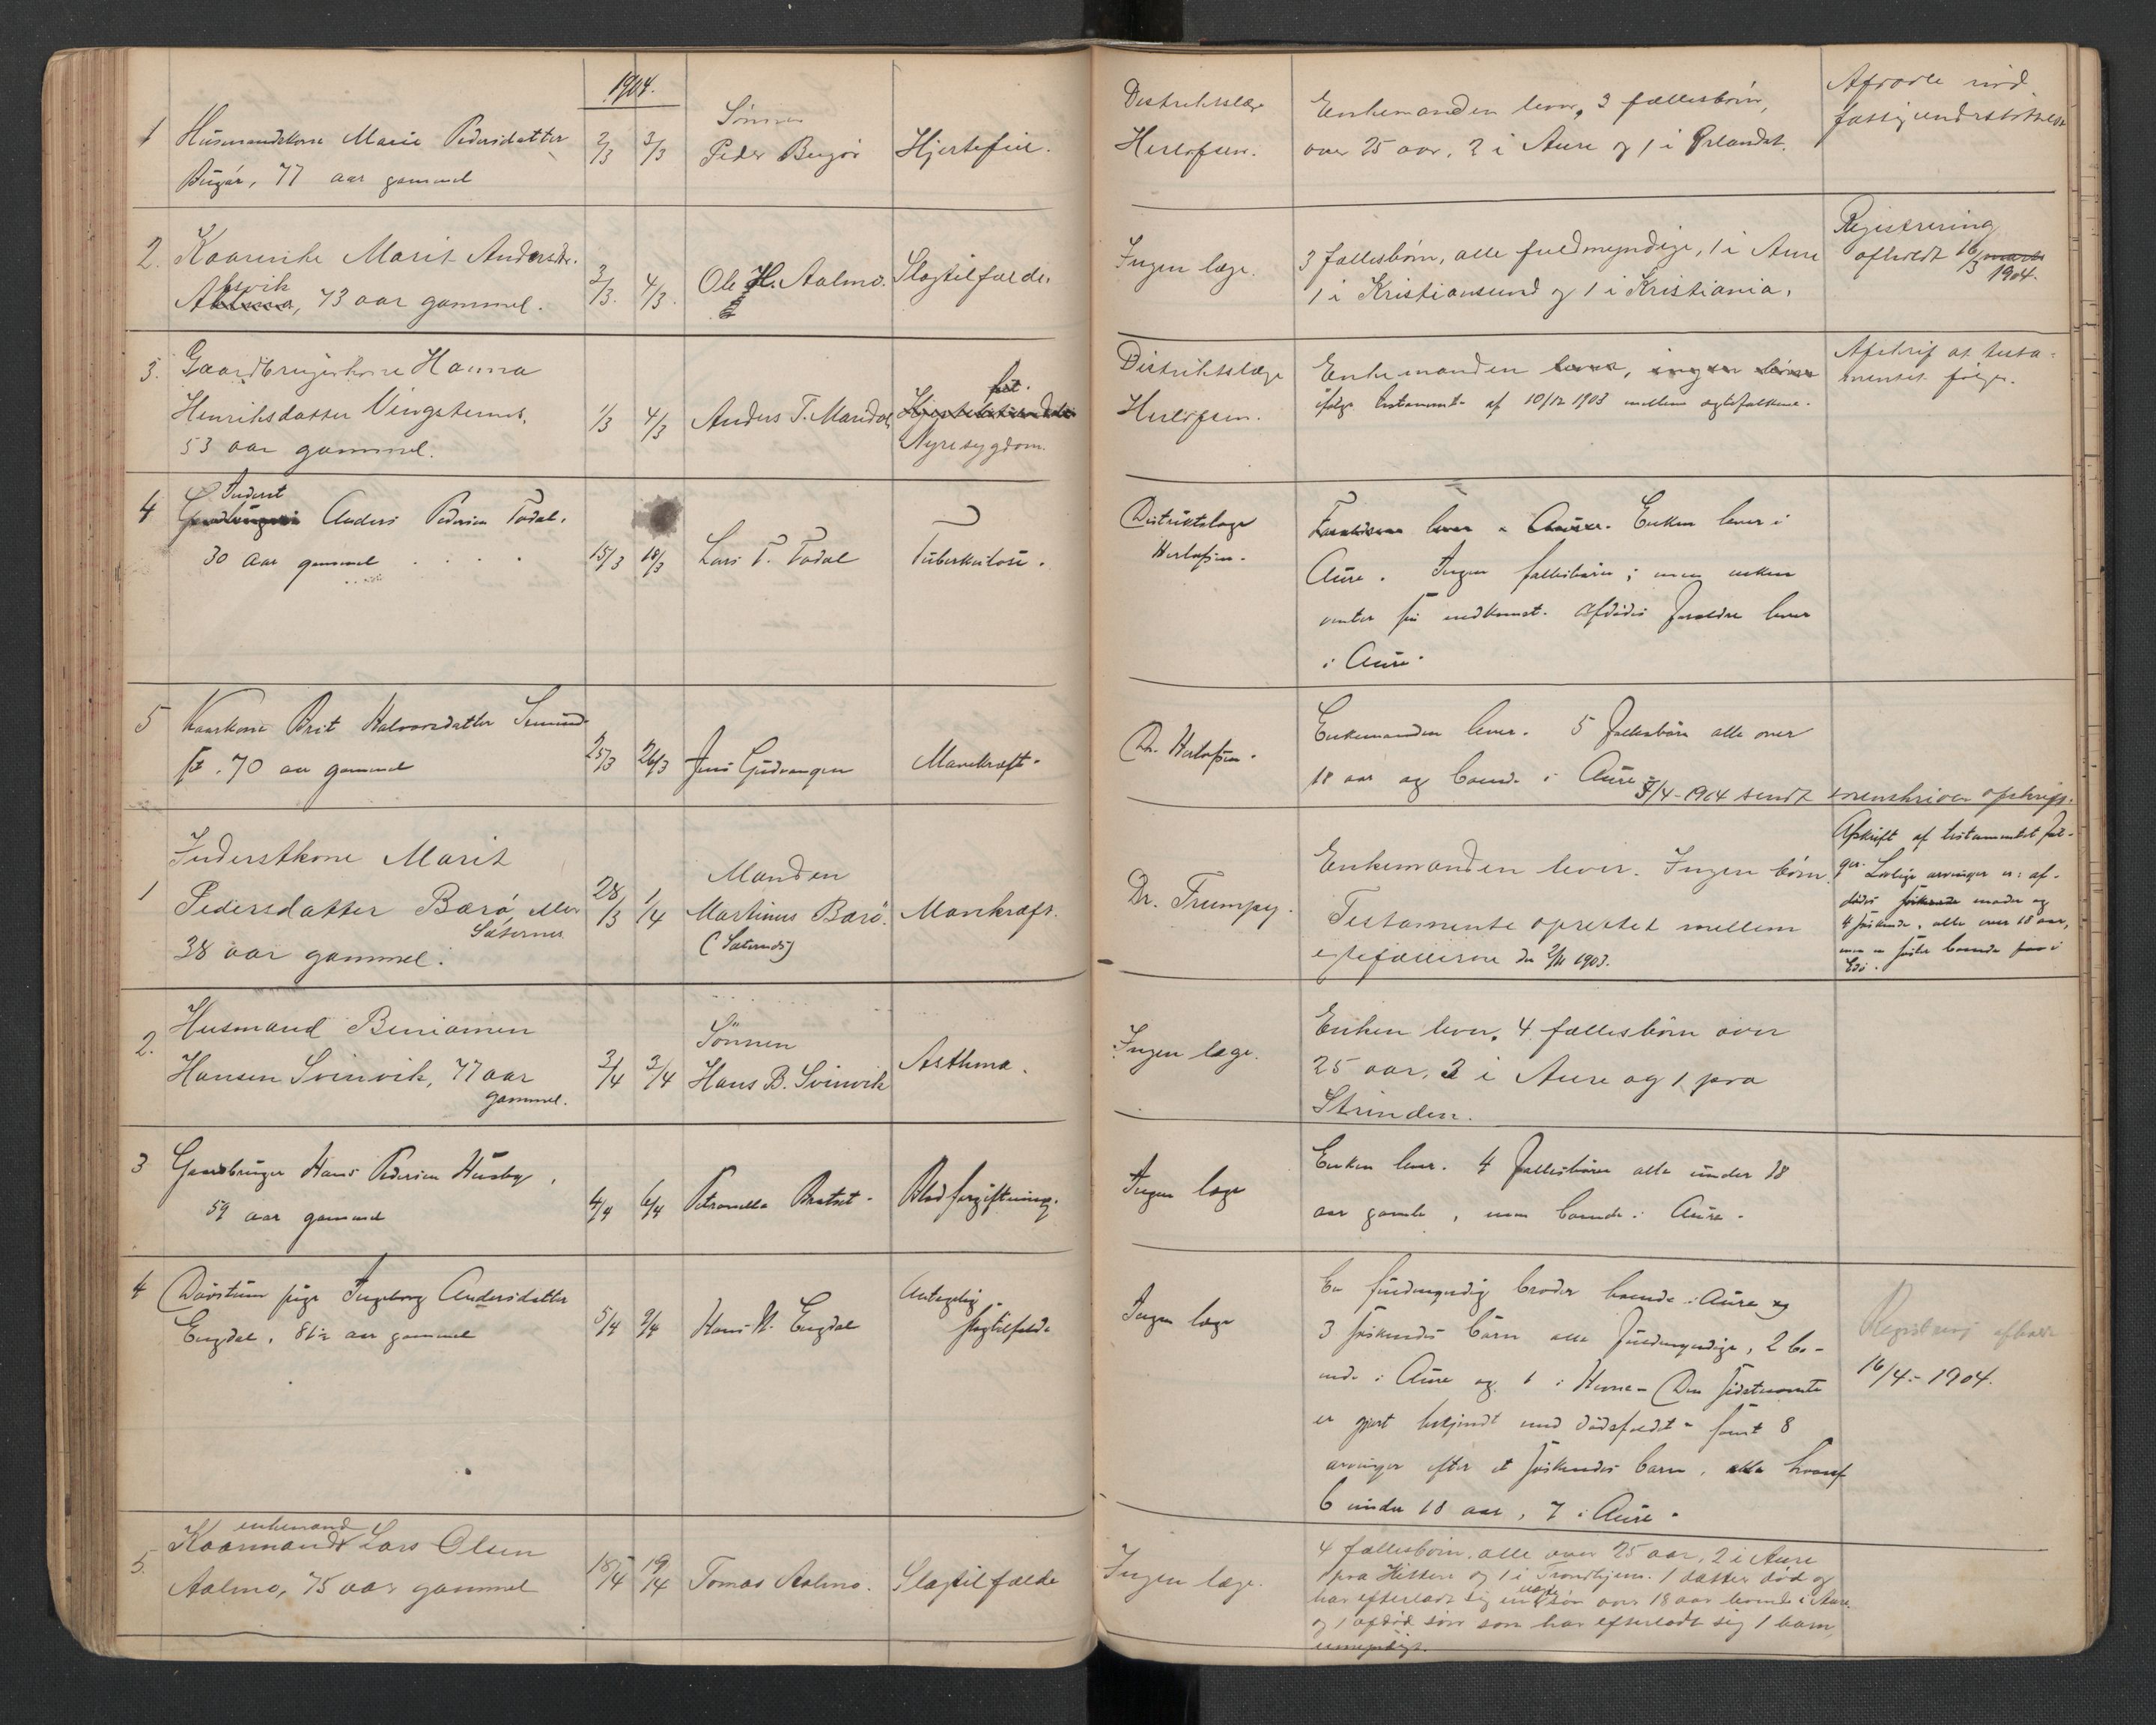 1904.
1 Husmandskone Marie Pedersdatter
Bugør, 77 aar gammel
2/3 3/3
Sønnen
Peder Bugør
Hjertefeil.
Distriktslæge
Herlofsen.
Enkemanden lever, 3 fællesbørn,
over 25 aar, 2 i Aure og 1 i Ørlandet.
Afdøde nød
fattigunderstøttelse
2. Kaarenke Marit Andersdtr.
73 aar gammel.
2/3. 4/3.
Ole H. Aalmo.
Slagtilfælde.
Ingen læge.
3 fællesbørn, alle fuldmyndige, 1 i Aure
1 i Kristiansund og 1 i Kristiania.
Registrering
afholdt 16/3 marts
1904.
3. Gaardbrugerkone Hanna
Henriksdatter Vingsternes,
53 aar gammel.
1/3 4/3
Anders T. Mardal
Nyresygdom.
Distriktslæge
Herlofsen.
Enkemanden lever, ingen børn
ifølge testamente af 10/12 1903 mellem ægtefolkene.
Afskrift af testa-
mentet følger.
4 Inderst
Gaardbruger Anders Pedersen Todal,
30 aar gammel
15/3 18/3
Lars T. Todal
Tuberkulose.
Distriktslæge
Herlofsen.
lever i Aure. Enken lever i
Aure. Ingen fællesbørn; men enken
venter sin nedkomst. Afdødes forældre lever
i Aure.
5 Kaarkone Brit Halvorsdatter
70 aar gammel
25/3 26/3
Jens Gudvangen
Marvkræft.
Dr. Herlofsen.
Enkemanden lever. 5 fællesbørn alle over
18 aar og boende i Aure
5/4-1904 sendt sorenskriver opskrift.
1 Inderstkone Marit
Pedersdatter Bærø eller
Sæternes
38 aar gammel.
28/3 1/4
Manden
Martinus Bærø.
(Sæternes)
Mavekræft.
Dr. Trumpy.
Enkemanden lever. Ingen børn.
Testamente oprettet mellem
egtefællerne de 2/11 1903.
Afskrift af testamentet føl-
ger. Lovlige arvinger er: af-
dødes moder og
4 søskende, alle over 18 aar,
boende i
Edø.
2. Husmand Beniamin
Hansen Svinvik, 77 aar
gammel.
2/4 3/4
Sønnen
Hans B. Svinvik
Asthma.
Ingen læge.
Enken lever, 4 fællesbørn over
25 aar, 3 i Aure og 1 paa
Strinden.
3 Gaardbruger Hans Pedersen Husby,
59 aar gammel
4/4 6/4
Petronelle Bratset.
Blodforgiftning.
Ingen læge
Enken lever. 4 fællesbørn alle under 18
aar gamle, men boende i Aure.
4 Døvstum pige Ingeborg Andersdatter
Engdal, 81½ aar gammel
5/4 9/4
Hans H. Engdal
Antagelig
slagtilfælde
Ingen læge
En fuldmyndig broder boende i Aure og
3 søskendes børn alle fuldmyndige, 2 bo-
ende i Aure og 1 i Hevne. Den sidstnævnte
er gjort bekjendt med dødsfaldet. Samt 8
arvinger efter et søskendes barn, alle hvoraf
6 under 18 aar, 7 i Aure.
Registrering afholdt
16/4-1904.
5. enkemand
Kaarmand Lars Olsen
Aalmo, 75 aar gammel
18/4 19/4
Tomas Aalmo.
Slagtilfælde
Ingen læge.
4 fællesbørn, alle over 25 aar, 2 i Aure
1 paa Hitteren og 1 i Trondhjem. 1 datter død og
har efterladt sig en uægte søn over 18 aar boende i Aure
og 1 afdød søn som har efterladt sig 1 barn,
umyndigt.